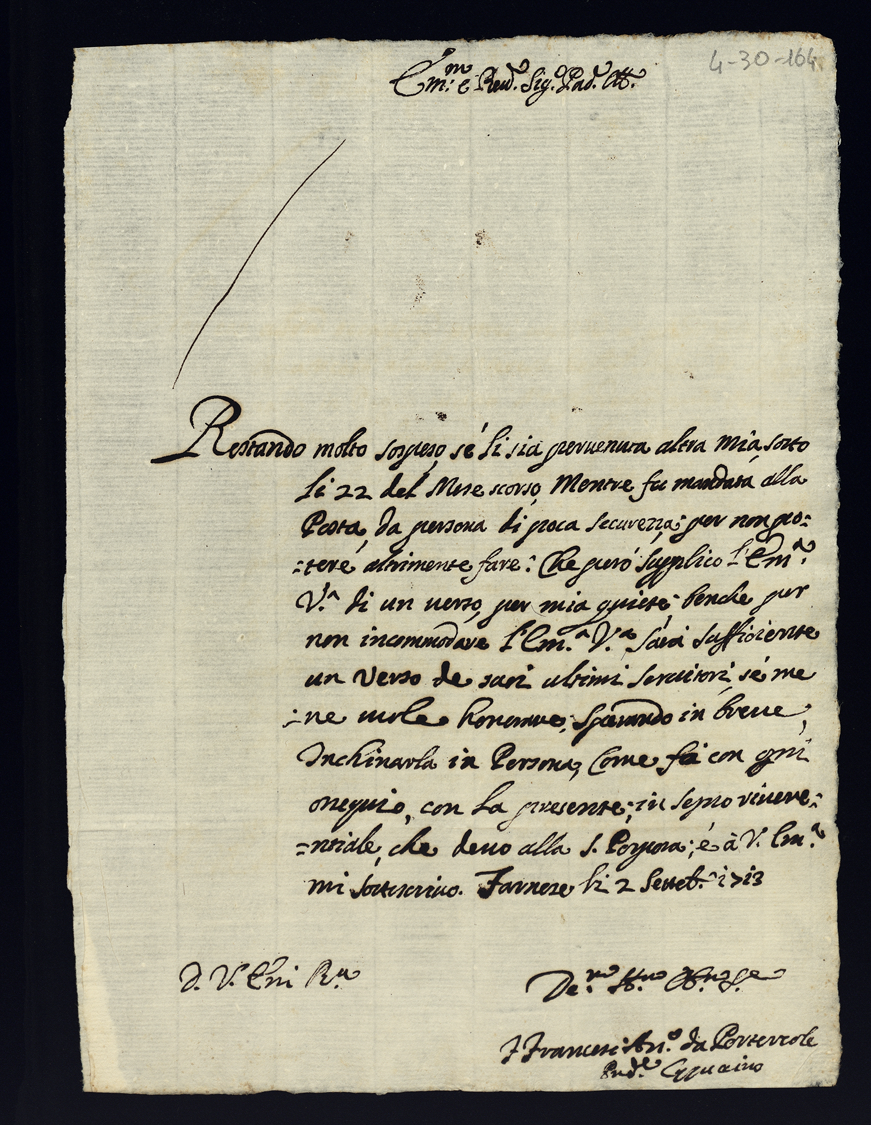 4-30-164
Em.mo e Rev.o Sig.o Pad.o Att.o
Restando molto sospeso, sé li sia pervenuta altra mia, sotto
li 22 del Mese scorso, Mentre fu mandata alla
Posta, da persona di poca securezza; per non po:
:teré altrimente fare: Che peró supplico l'Em.a
V.a di un verso, per mia quiete; benche per
non incommodare l'Em.a V.a sará sufficiente
un Verso de suoi ultimi servitori, sé me
:ne vole honorare; Sperando in breve,
Inchinarla in Persona, Come fó con ogni
ossequio, con la presente; in segno rivere:
:ntiale, che devo alla S. Porpora; é à V. Em.a
mi sottoscrivo. Farnese li 2 Setteb.e 1713
D. V. Em Rm
De.mo
F Francesc Ant.o da Portercole
Pred.e Cappucino